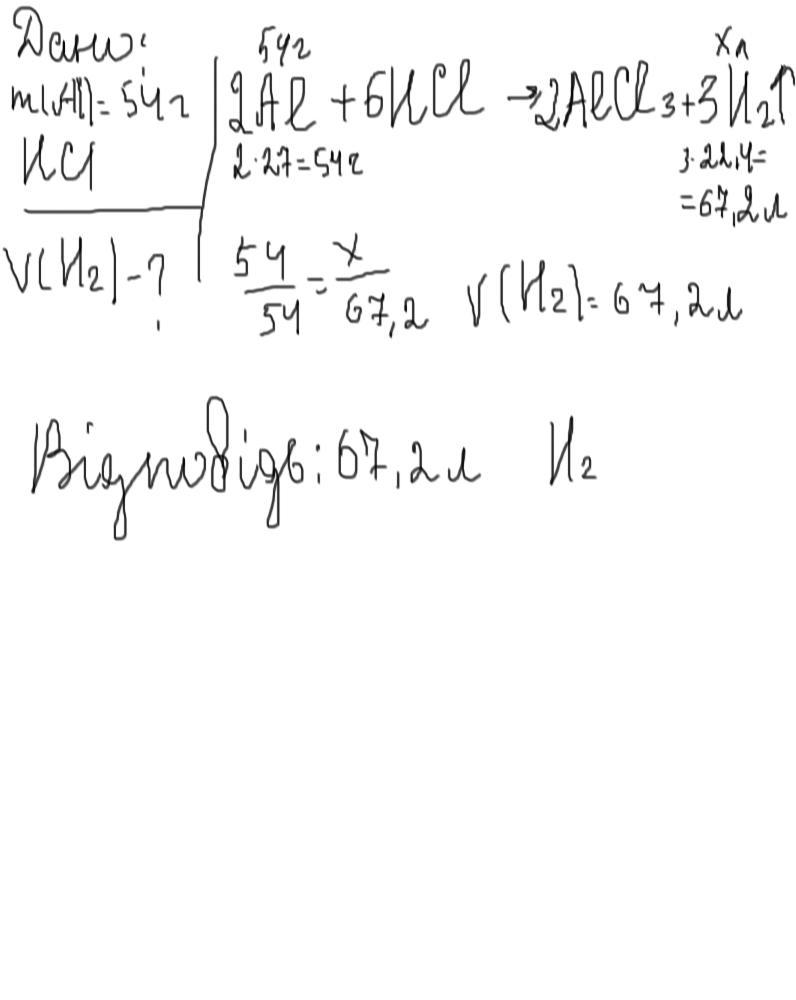 Дано:
m(Al)=54г
HCl
V(H₂)-?
54г
xл
2Al+6HCl→2AlCl₃+3H₂↑
2·27=54г
3·22,4=
=67,2л
54/54=x/67,2
V(H₂)=67,2л
Відповідь: 67,2л H₂